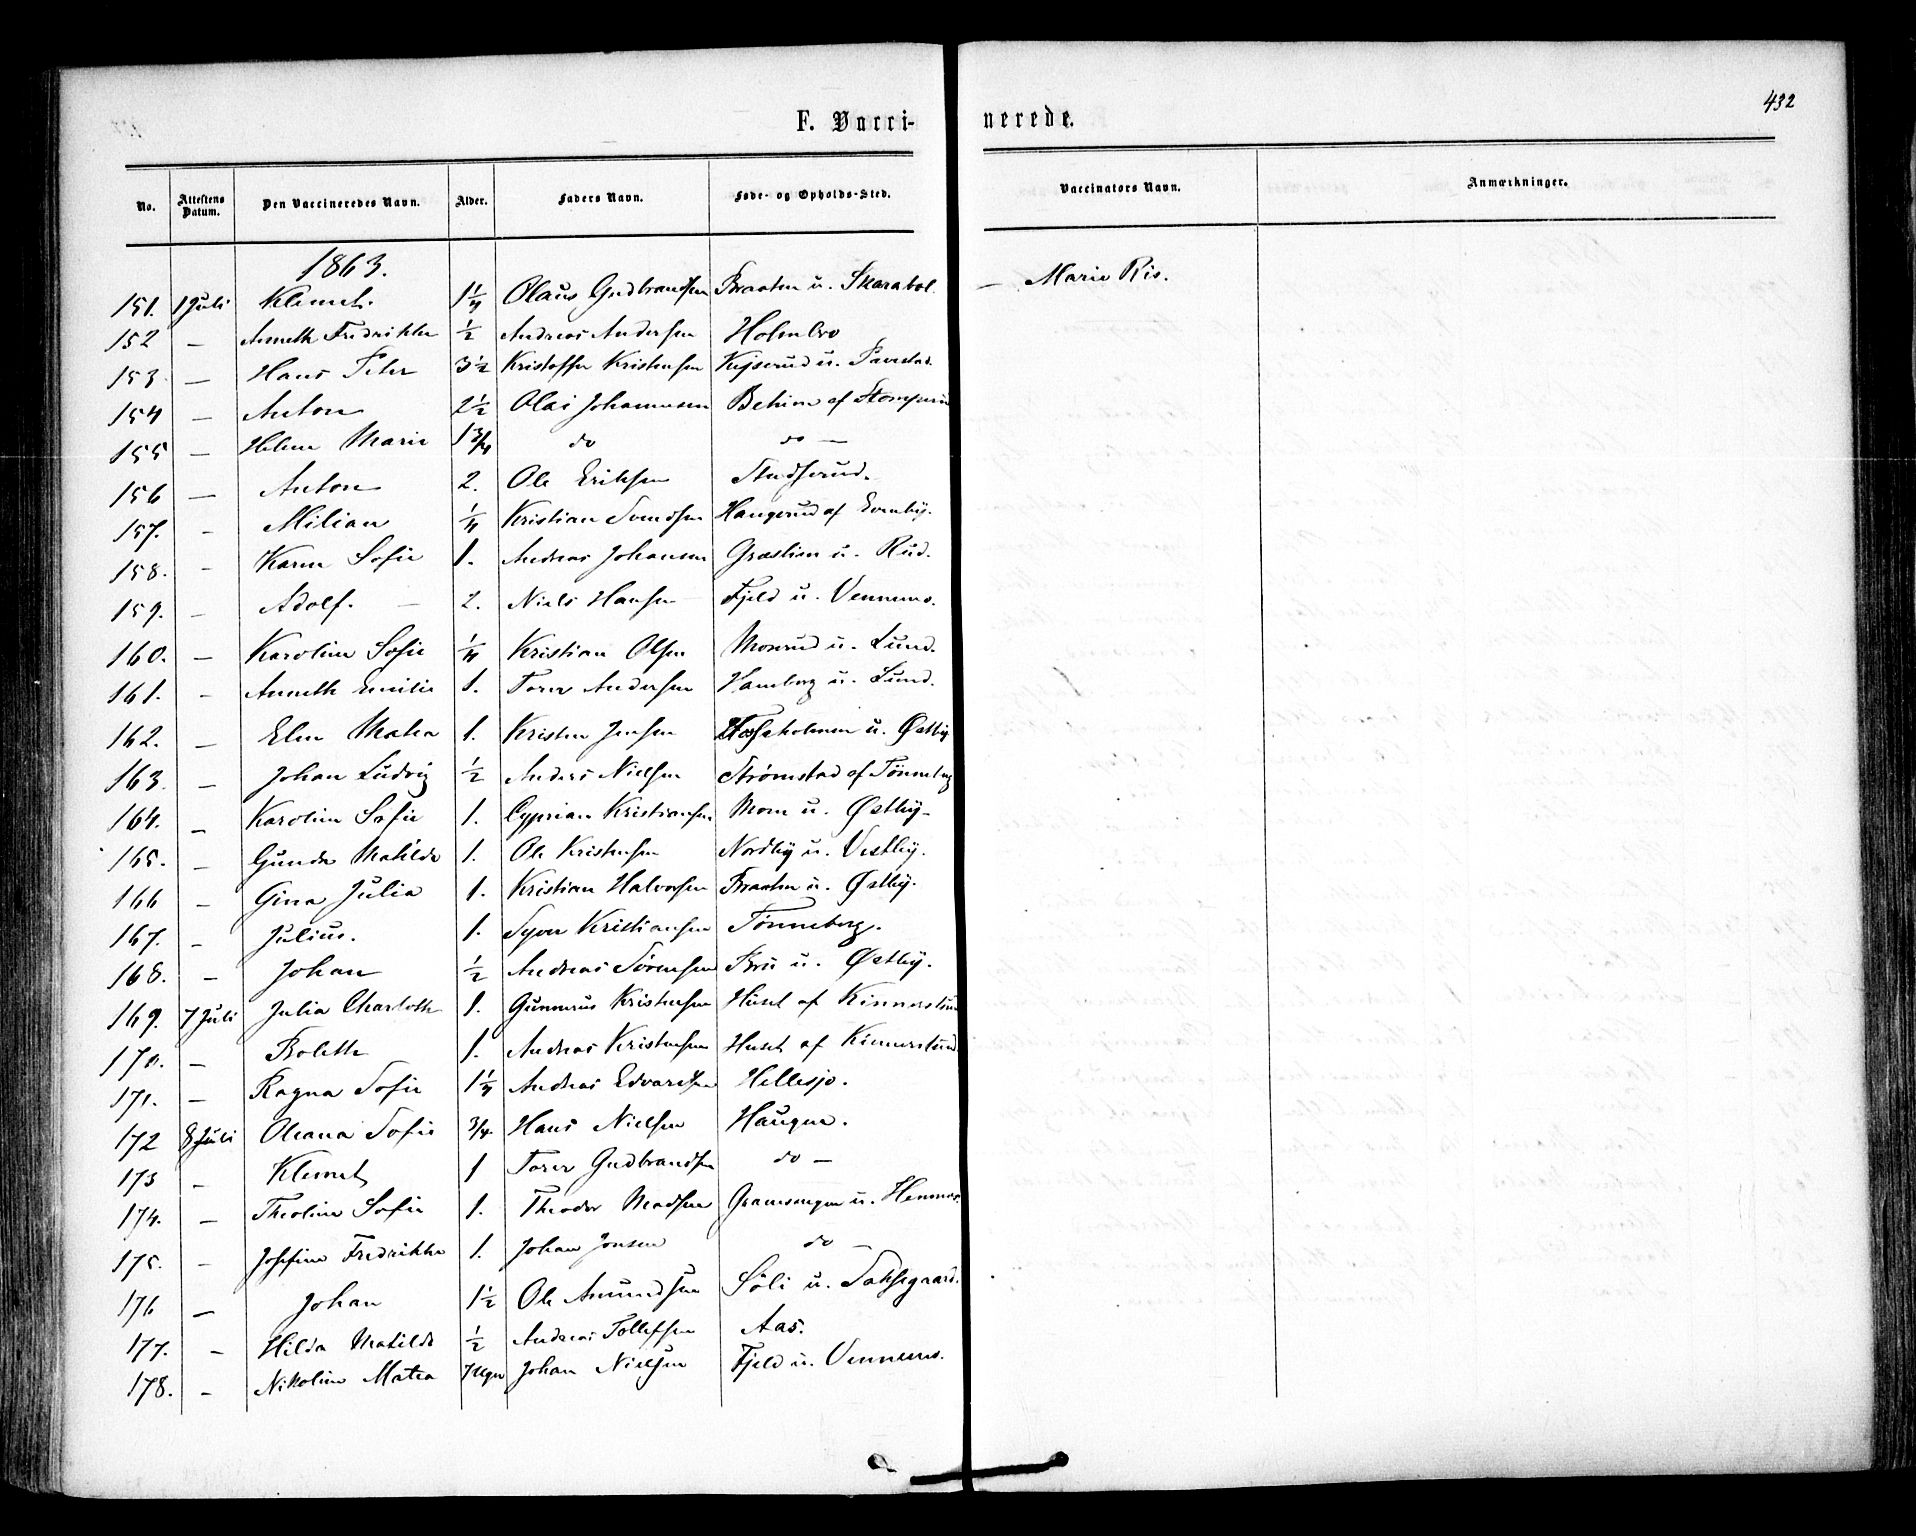 432
F. Vacci- nerede.
No. Attestens Datum. Den Vaccineredes Navn. Alder. Faders Navn. Føde- og Opholds-Sted. Vaccinators Navn. Anmærkninger.
1863.
151. 1 Juli Klemet. 1 1/4 Olaus Gudbrandsen Braaten u. Skarabøl. — Marie Ris.
152 — Anneth Fredrikke 1/2 Andreas Andersen Holmbro
153. — Hans Peter 3 1/2 Kristoffer Kristensen Kejserud u.
154 — Anton 2 1/2 Olai Johannesen af
155 — Helene Marie 1 3/4 do do —
156 — Anton 2. Ole Eriksen
157. - Milian 1/4 Kristian Svendsen Haugerud af Evenby.
158. - Karen Sofie 1. Andreas Johansen Græslien u. Rud.
159. - Adolf. — 2. Niels Hansen Fjeld u. Vennems.
160. — Karoline Sofie 1/4 Kristian Olsen Moserud u. Lund.
161. - Anneth Emilie 1. Torer Andersen Hamborg u. Lund.
162. — Elen Mathea 1. Kristen Jensen u. Østby
163. — Johan Ludvig 1/2 Anders Nielsen Strømstad af Tønneberg
164. — Karoline Sofie 1. Cyprian Kristiansen Moen u. Østby-
165. — Gunda Matilde 1. Ole Kristensen Nordby u. Vestby.
166 — Gina Julia 1. Kristian Halvorsen Braaten u. Østby.
167. - Julius. 1. Syver Kristiansen Tønneberg.
168. - Johan 1/2 Andreas Sørensen Bru u. Østby.
169. 7 Juli Julia Charlotte 1. Gunnerus Kristensen Huset af Kinnestund
170. — Bolette 1. Andreas Kristensen Huset af Kinnerstund.
171. — Ragna Sofie 1 1/4 Andreas Edvardsen Hellesjø.
172 8 Juli Oleana Sofie 3/4. Hans Nielsen Haugen.
173 - Klemet 1 Torer Gudbrandsen do —
174. — Theoline Sofie 1. Theodor Madsen u. Hennes.
175. - Josefine Fredrikke 1. Johan Jonsen do —
176 — Johan 1 1/2 Ole Amundsen Søli u. Taksegaard.
177. - Hilda Matilde 1/2 Andreas Tollefsen Aas.
178. - Nikoline Matea 7 Uger Johan Nielsen Fjeld u. Vennems.